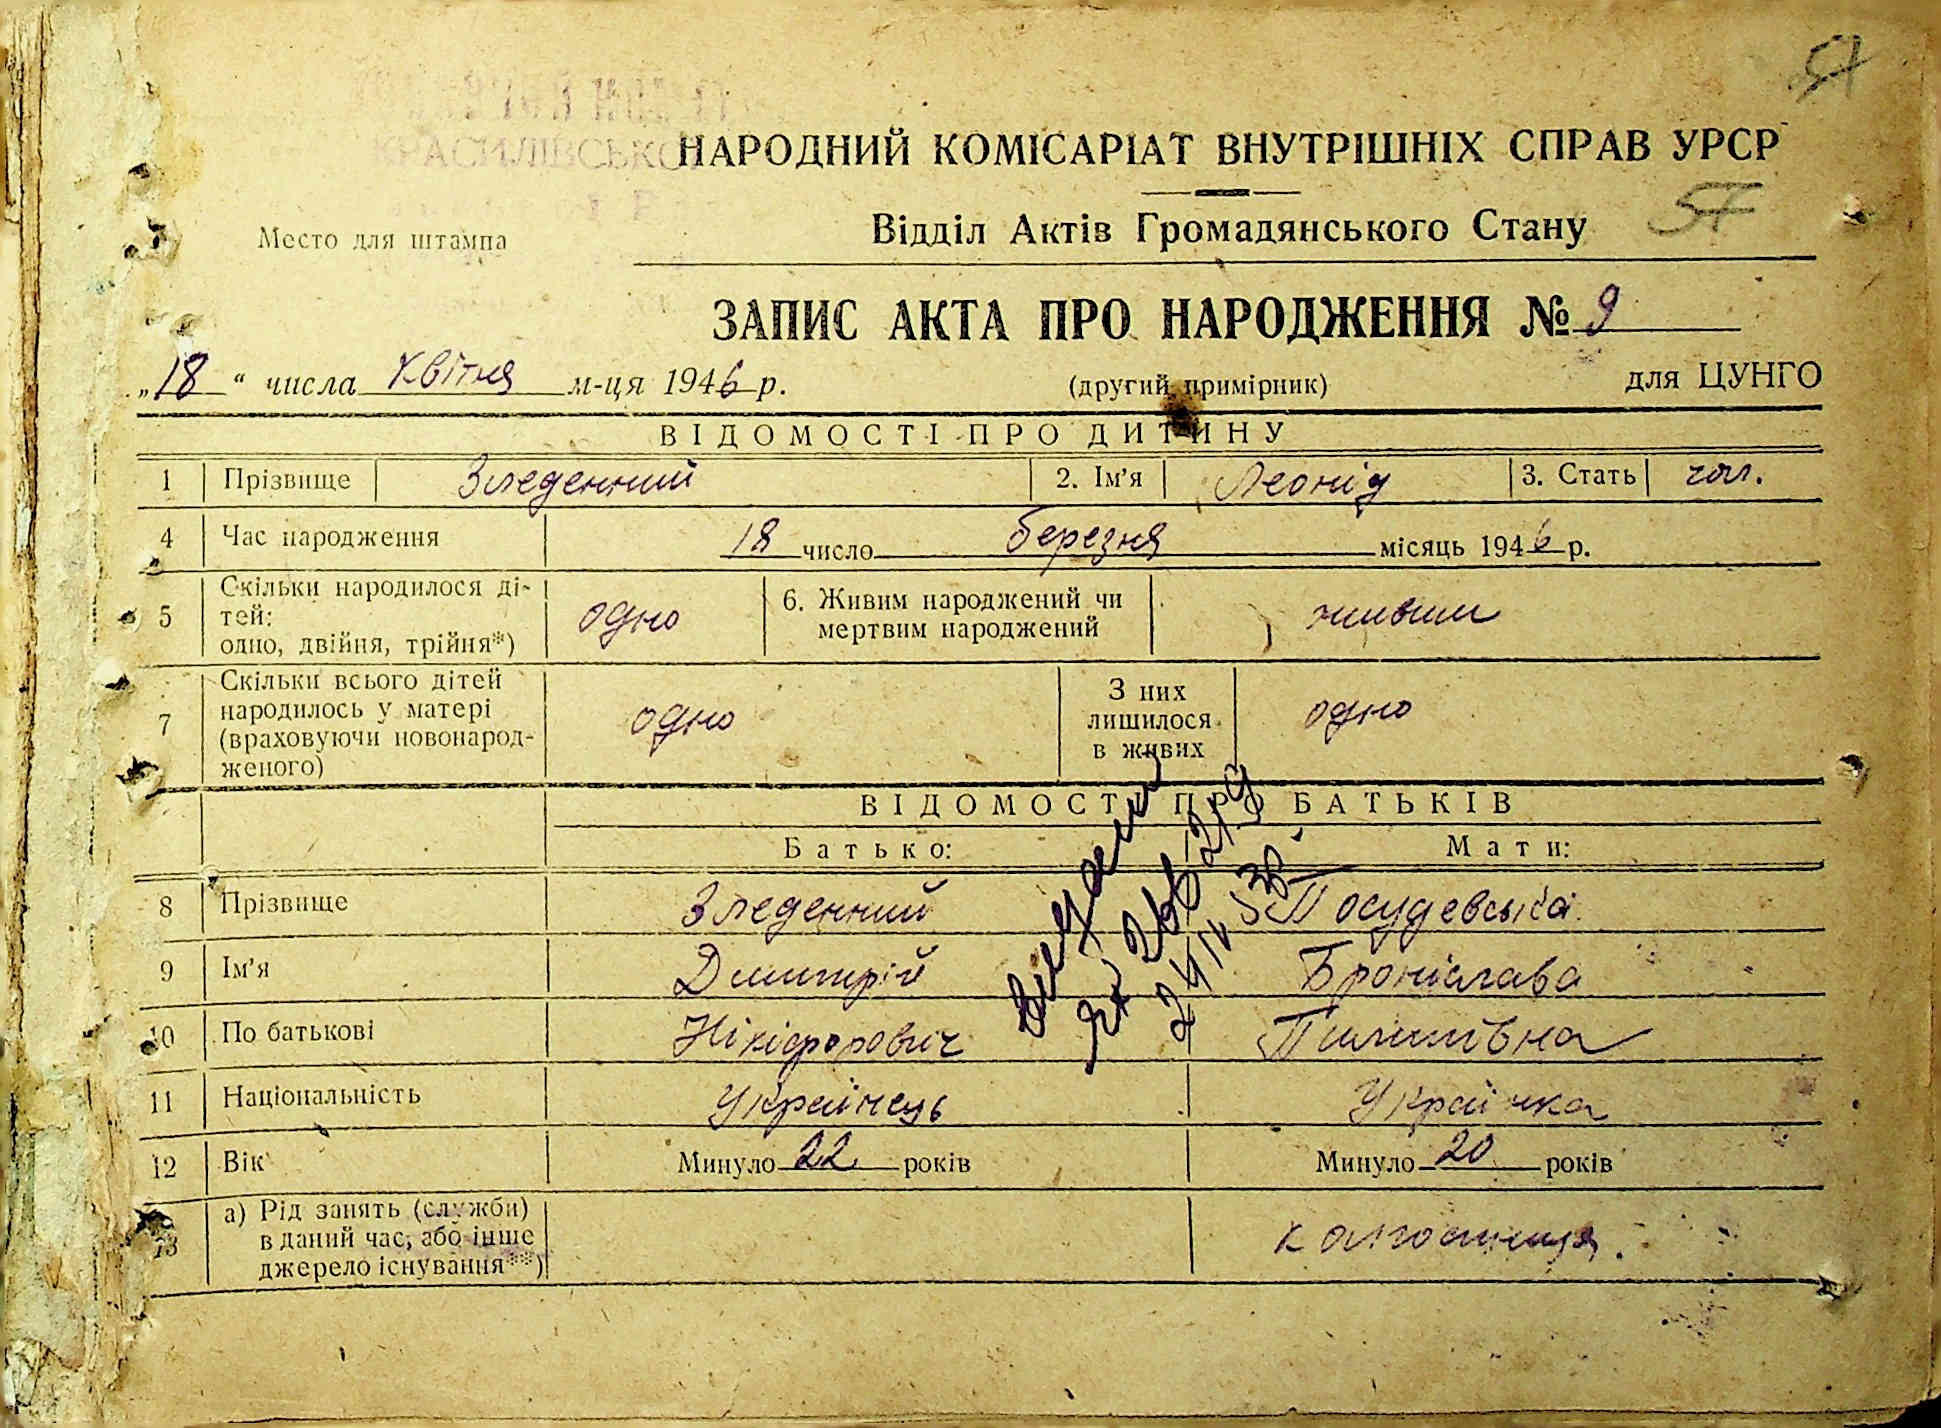 57
КРАСИЛІВСЬКО
НАРОДНИЙ КОМІСАРІАТ ВНУТРІШНІХ СПРАВ УРСР
57
Место для штампа
Відділ Актів Громадянського Стану
ЗАПИС АКТА ПРО НАРОДЖЕННЯ № 9
„18“ числа квітня м-ця 1946 р.
(другий примірник)
для ЦУНГО
ВІДОМОСТІ ПРО ДИТИНУ
1 Прізвище Зледенний 2. Ім’я Леонід 3. Стать чол.
4 Час народження 18 число березня місяць 1946 р.
5 Скільки народилося ді-
тей:
одно, двійня, трійня*)
одно
6. Живим народжений чи
мертвим народжений
живим
7 Скільки всього дітей
народилось у матері
(враховуючи новонарод-
женого)
одно
З них
лишилося
в живих
одно
ВІДОМОСТІ ПРО БАТЬКІВ
Батько: Мати:
8 Прізвище Зледенний Посудевська
9 Ім’я Дмитрій Броніслава
10 По батькові Нікіфорович Пилипівна
11 Національність Українець Українка
12 Вік Минуло 22 років Минуло 20 років
13 а) Рід занять (служби)
в даний час, або інше
джерело існування**)
колгоспниця.